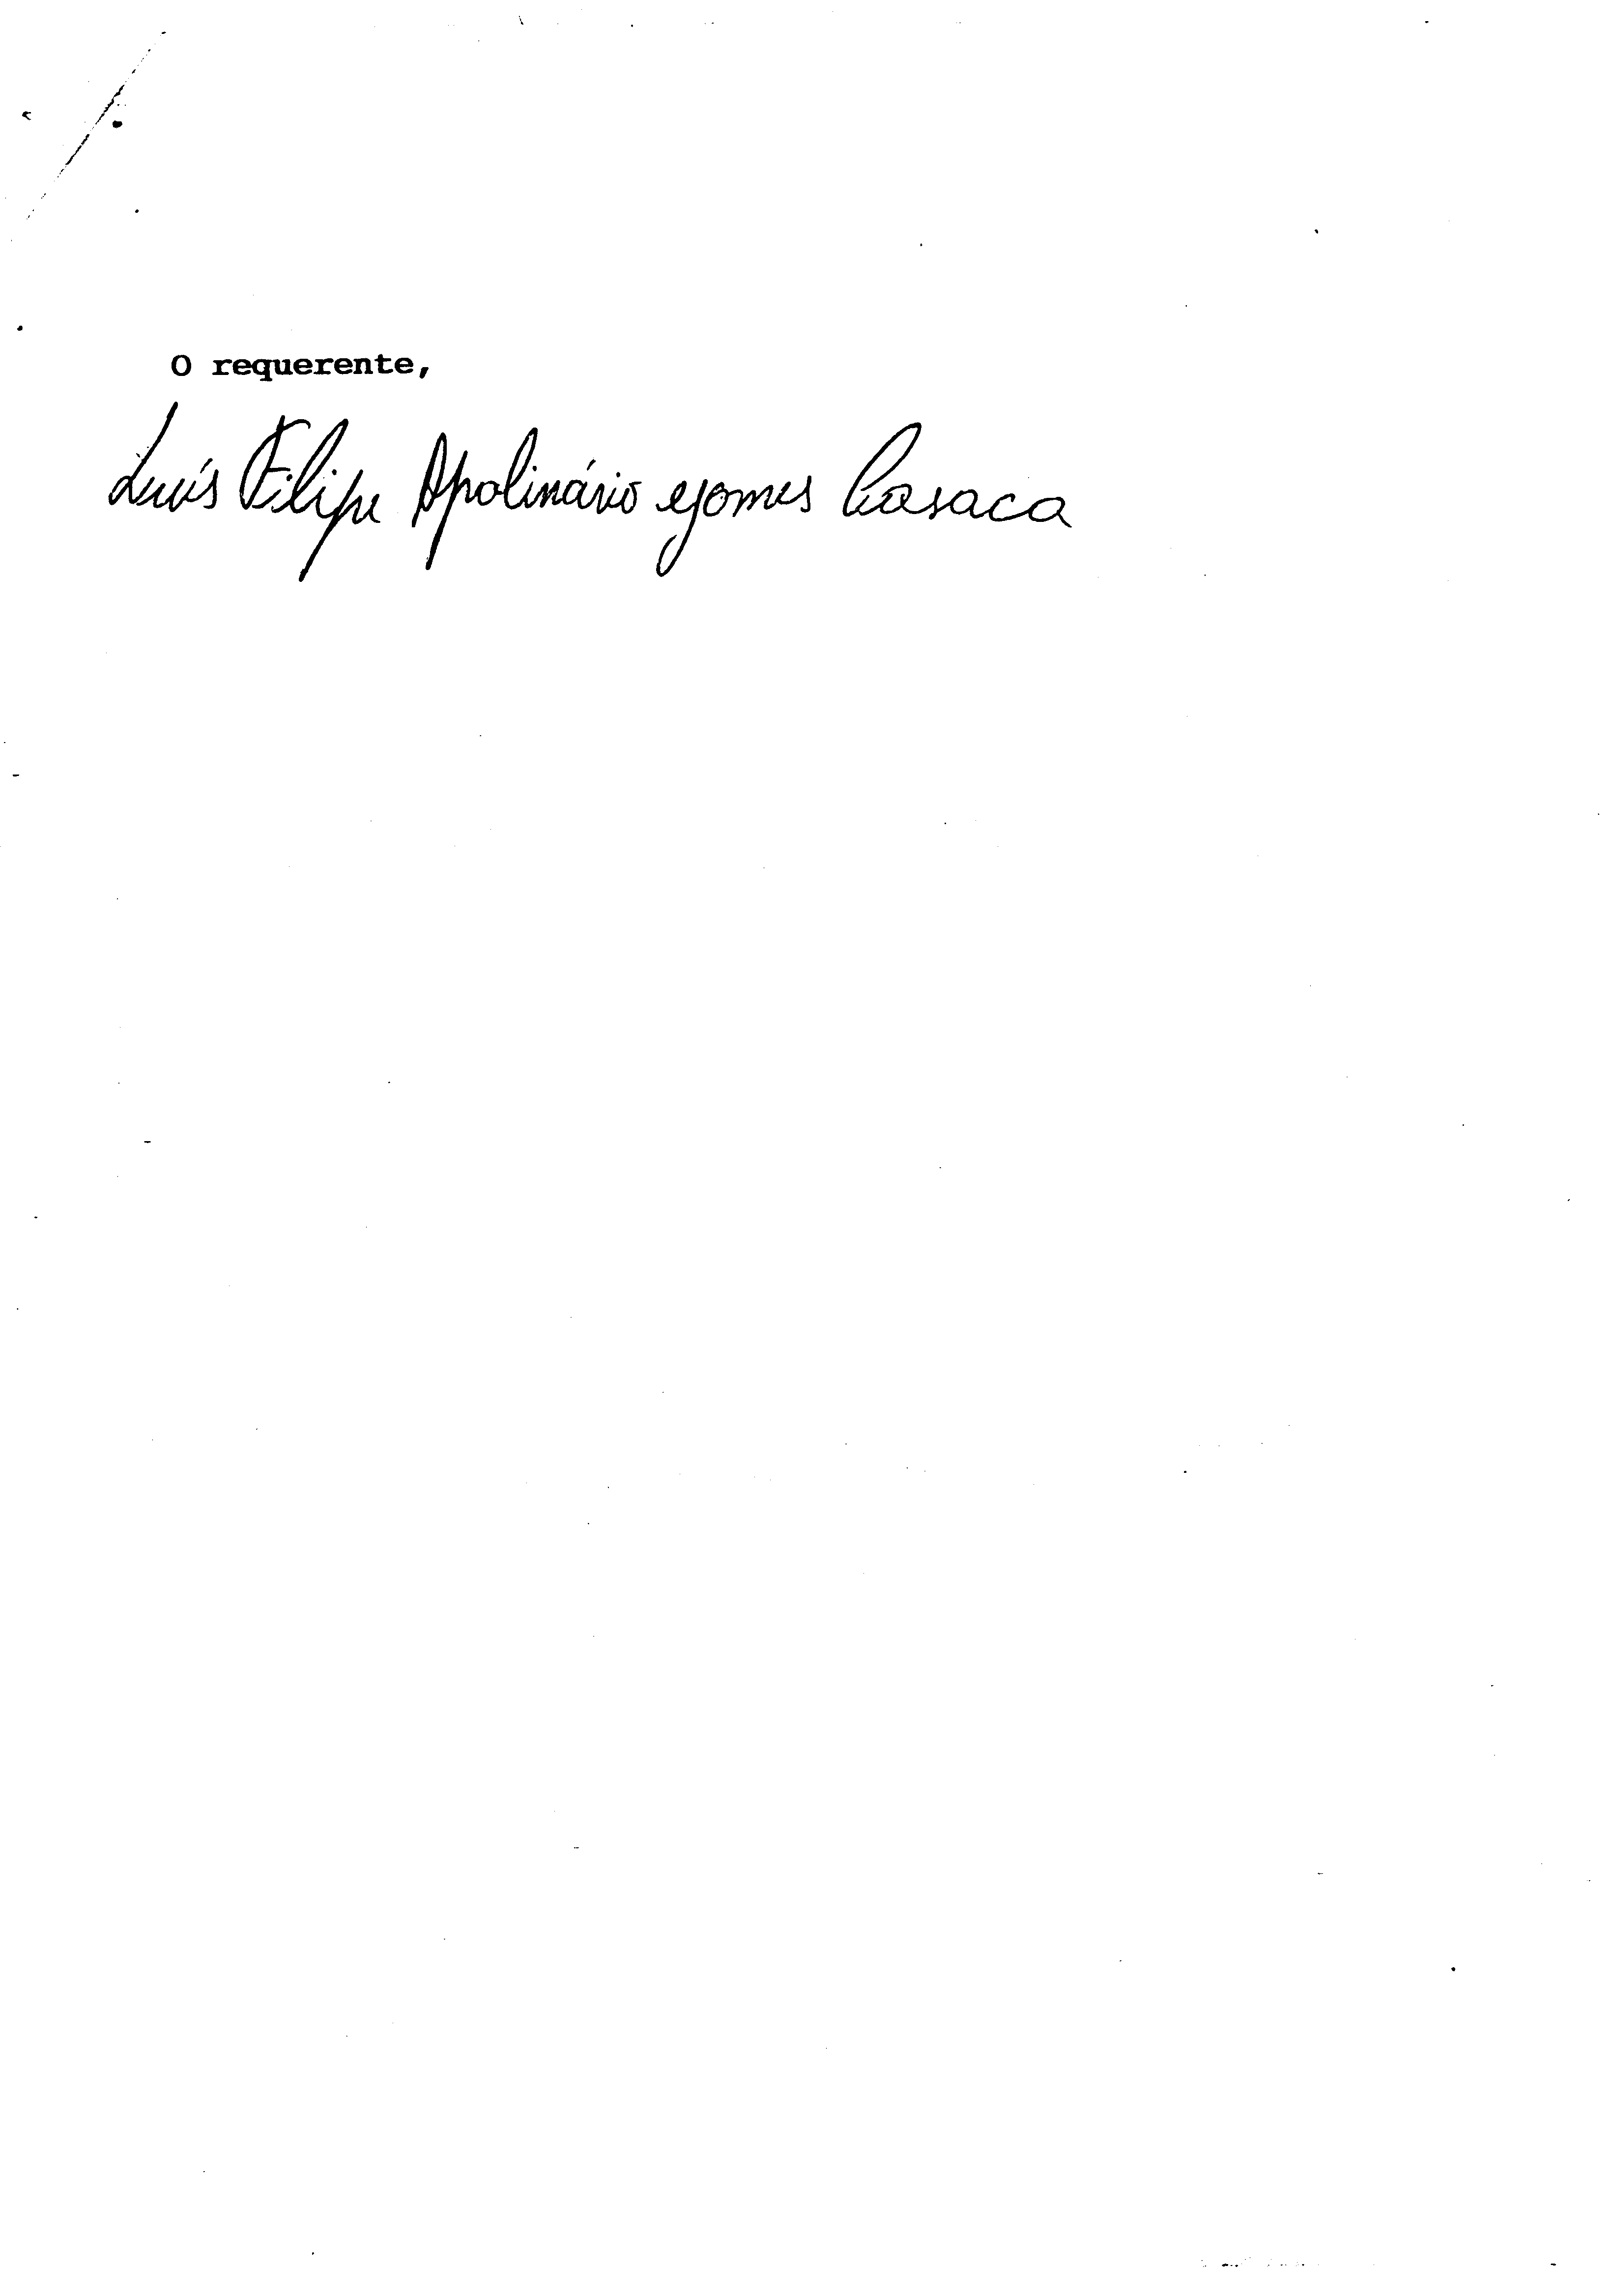 O requerente,
Luís Filipe Apolinário Gomes Casaca